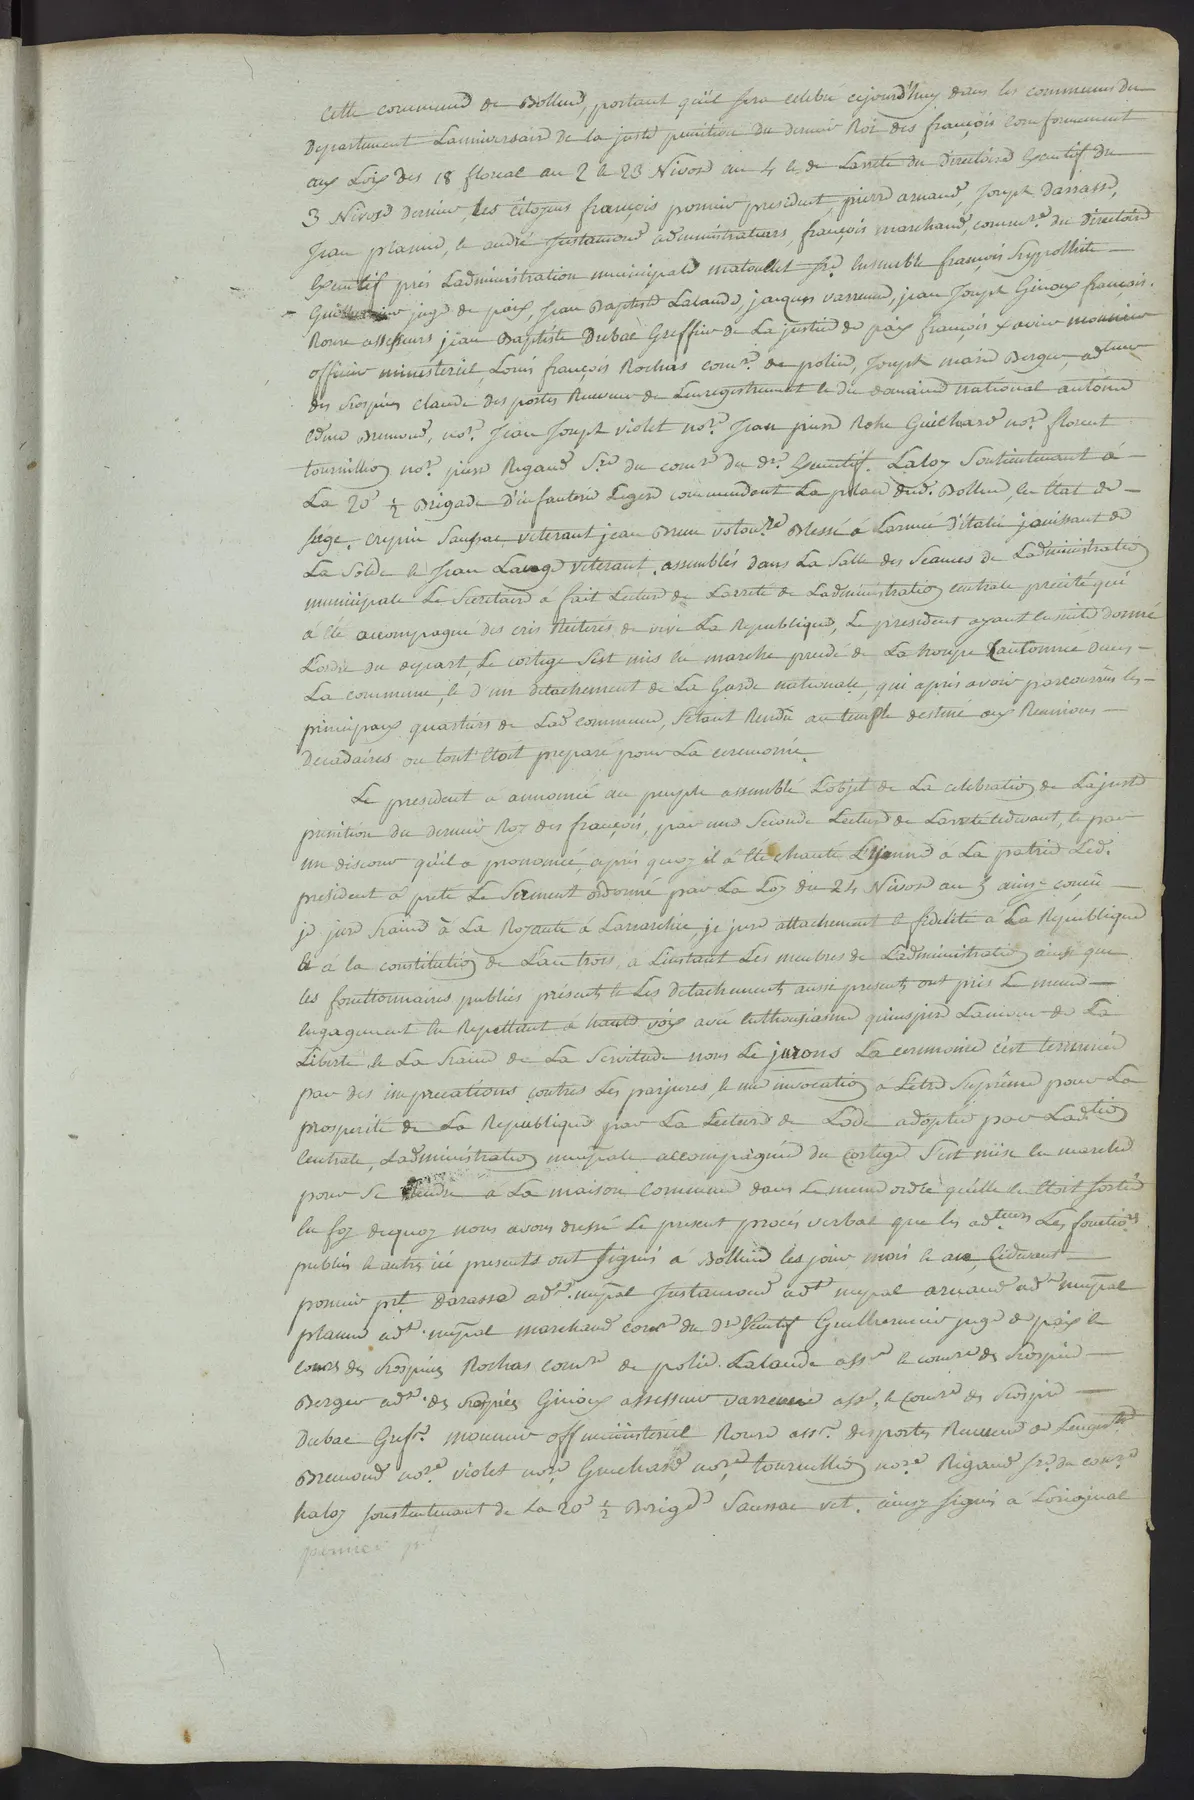 Cette commune de Bollene, portant qu'il sera celebré cejourd'huy dans les communes du
Departement L'anniversaire de la juste punition du dernier Roi des françois conformement
aux Loix des 18 floreal an 2 et 23 Nivose an 4 et de L'arreté du Directoire Executif du
3 Nivose dernier, les citoyens françois pomier president, pierre arnaud, Joseph Darasse,
Jean planne, et andré Justamond administrateurs, françois marchand, commre. du Directoire
Executif près L'administration municipale matoullet sre. Ensemble françois hyppollite
Guilhermier juge de paix, Jean Baptiste Lalande, jacques varrenne, jean Joseph Giroux françois
Roure assesseurs jean Baptiste Dubac Greffier de La justice de paix françois xavier monnier
officier ministeriel, Louis françois Rochas comre. de police, Joseph marie Berger, adteur
des hospices Claude des portes Receveur de L'enregistrement et du domaine national antoine
edme Bremond, nore. Jean Joseph violet nore. Jean pierre Rohe Guichard nore. florent
tournillion nore. pierre Rigaud Sre du comre du dre. Executif. Laloy Soutlieutenant à
La 20e ½ Brigade d'infanterie Legere commendant La place dud. Bollene, en Etat de
siége, crepin Saussac veterant jean Brun volonre Blessé à L'armée d'italie jouissant de
La Solde et Jean Lauge veterant, assemblés dans La Salle des Seances de L'administration
municipale Le Secretaire à fait Lecture de L'arreté de L'administration centrale precité qui
à été accompagné des cris Reiterés de vive La Republique, Le president ayant ensuite donné
L'ordre du depart, Le cortege s'est mis en marche precedé de La troupe Cantonnée dans
La commune, et d'un detachement de La Garde nationale, qui après avoir parcourrus les
principaux quartiers de Lad. commune, s'etant Rendu au temple destiné aux Reunions
Decadaires ou tout Etoit preparé pour La ceremonie.
Le president a annoncé au peuple assemblé L'objet de La celebration de La juste
punition du dernier Roy des françois, par une Seconde Lecture de L'arreté cidevant, et par
un discour qu'il a prononcé, après quoy il á été chanté L'hymne à La patrie Led.
president à preté Le Serment ordonné par La Loy du 24 Nivose an 5 ainsy conçu
je jure haine à La Royauté à L'anarchie, je jure attachement et fidelité à La Republique
et à la constitution de L'an trois, à L'instant Les membres de L'administration ainsi que
les fonctionnaires publics présents et Les detachements aussi presents ont pris Le meme
engagement En Repettant à haute voix avec enthousiasme qu'inspire L'amour de La
Liberté, et La haine de La Servitude nous Le jurons La ceremonie s'est terminée
par des imprecations contres Les parjures, et une invocation à L'etre Suprême pour La
prosperité de La Republique par La Lecture de L'ode adoptée par L'adtion
Centrale, L'administration mupale accompagnée du cortege S'est mise en marche
pour se Rendre à La maison Commune dans Le meme ordre qu'elle En Etoit sortie
En foy dequoy nous avons dressé Le present procès verbal que les adteurs Les fonctiores
publics et autres icé presents ont signés á Bollene les jour, mois et an, Cidevant
pomier prt Darasse adtr. mupal Justamond adtr mupal arnaud adtr mupal
planne adtr. mupal marchand comre du dre Executif Guilhermier juge de paix et
comre des hospices Rochas comre de police Lalande assr et comre des hospices
Berger adtr. des hospices Giroux assesseur varrenne assr. et comre des hospice
Dubac Grefr. monnier off ministeriel Roure assr. desportes Receveur de L'enregistre
Bremond nore. violet nore. Guichard nore. tournillion nore. Rigaud sre. du comre
Laloy soutlieutenant de La 20e ½ Brigde Saussac vet. ainsy signés à L'original
pomier prt